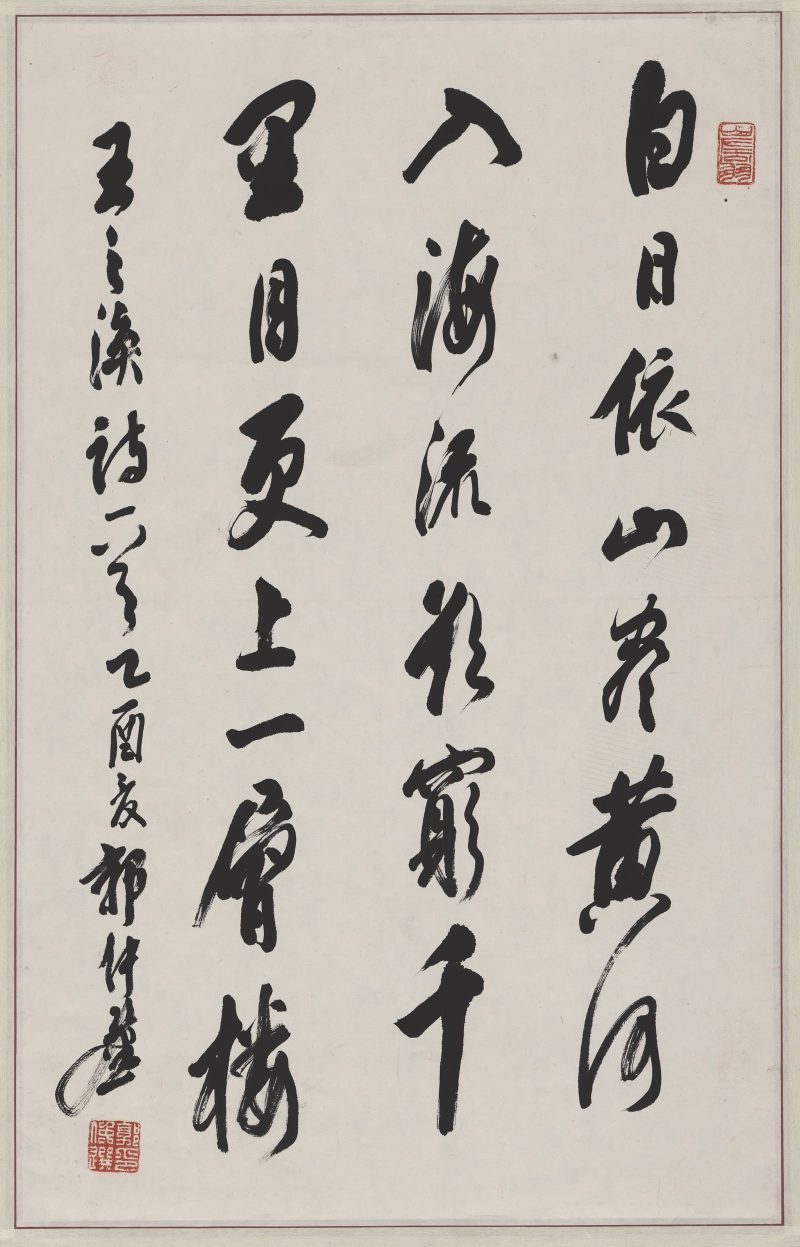 白日依山尽黄河
入海流欲窮千
里目更上一層楼
王之涣诗一首乙酉夏郭仲選
郭印仲選